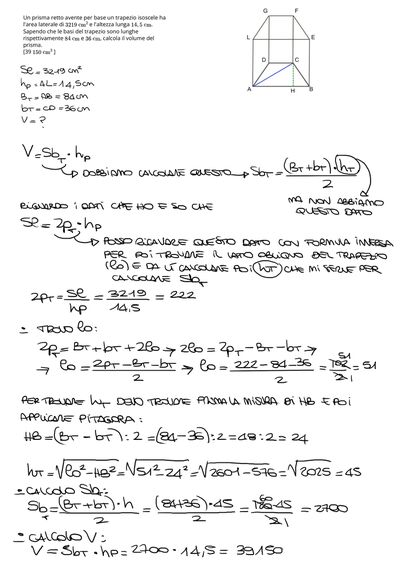 Un prisma retto avente per base un trapezio isoscele ha
l'area laterale di 3219 cm² e l'altezza lunga 14,5 cm.
Sapendo che le basi del trapezio sono lunghe
rispettivamente 84 cm e 36 cm, calcola il volume del
prisma.
[39 150 cm³]
G F
L E
D C
A H B
Sℓ = 3219 cm²
hp = AL = 14,5 cm
BT = AB = 84 cm
bT = CD = 36 cm
V = ?
V = SbT · hp
DOBBIAMO CALCOLARE QUESTO → SbT = (BT + bT) · hT / 2
MA NON ABBIAMO
QUESTO DATO
RIGUARDO I DATI CHE HO E SO CHE
Sℓ = 2pT · hp
POSSO RICAVARE QUESTO DATO CON FORMULA INVERSA
PER POI TROVARE IL LATO OBLIQUO DEL TRAPEZIO
(ℓo) E DA LÌ CALCOLARE POI hT CHE MI SERVE PER
CALCOLARE SbT
2pT = Sℓ / hp = 3219 / 14,5 = 222
- TROVO ℓo:
2pT = BT + bT + 2ℓo → 2ℓo = 2pT - BT - bT →
→ ℓo = 2pT - BT - bT / 2 → ℓo = 222 - 84 - 36 / 2 = 102 51 / 2 1 = 51
PER TROVARE hT DEVO TROVARE PRIMA LA MISURA DI HB E POI
APPLICARE PITAGORA:
HB = (BT - bT) : 2 = (84 - 36) : 2 = 48 : 2 = 24
hT = √ℓo² - HB² = √51² - 24² = √2601 - 576 = √2025 = 45
- CALCOLO SbT:
SbT = (BT + bT) · h / 2 = (84 + 36) · 45 / 2 = 120 60 · 45 / 2 1 = 2700
- CALCOLO V:
V = SbT · hp = 2700 · 14,5 = 39150